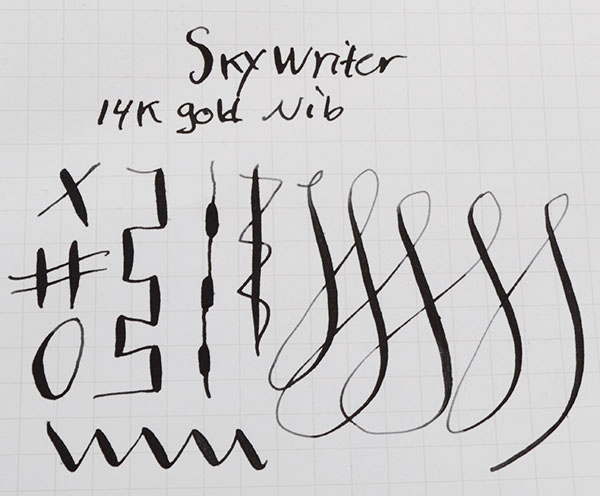 Skywriter
14K gold Nib
X
#
O